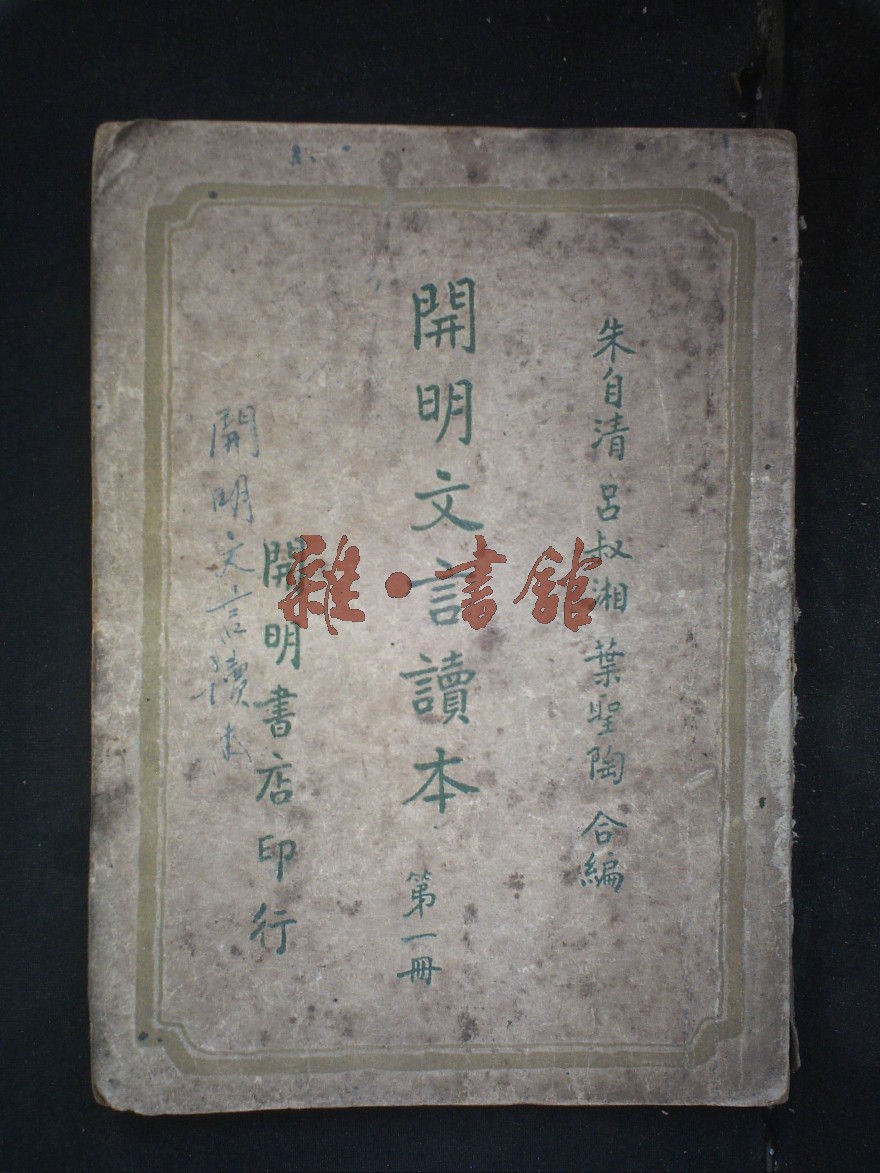 朱自清 呂叔湘 葉聖陶 合編
開明文言讀本 第一冊
開明書店印行
開明文言讀本
雜·書館